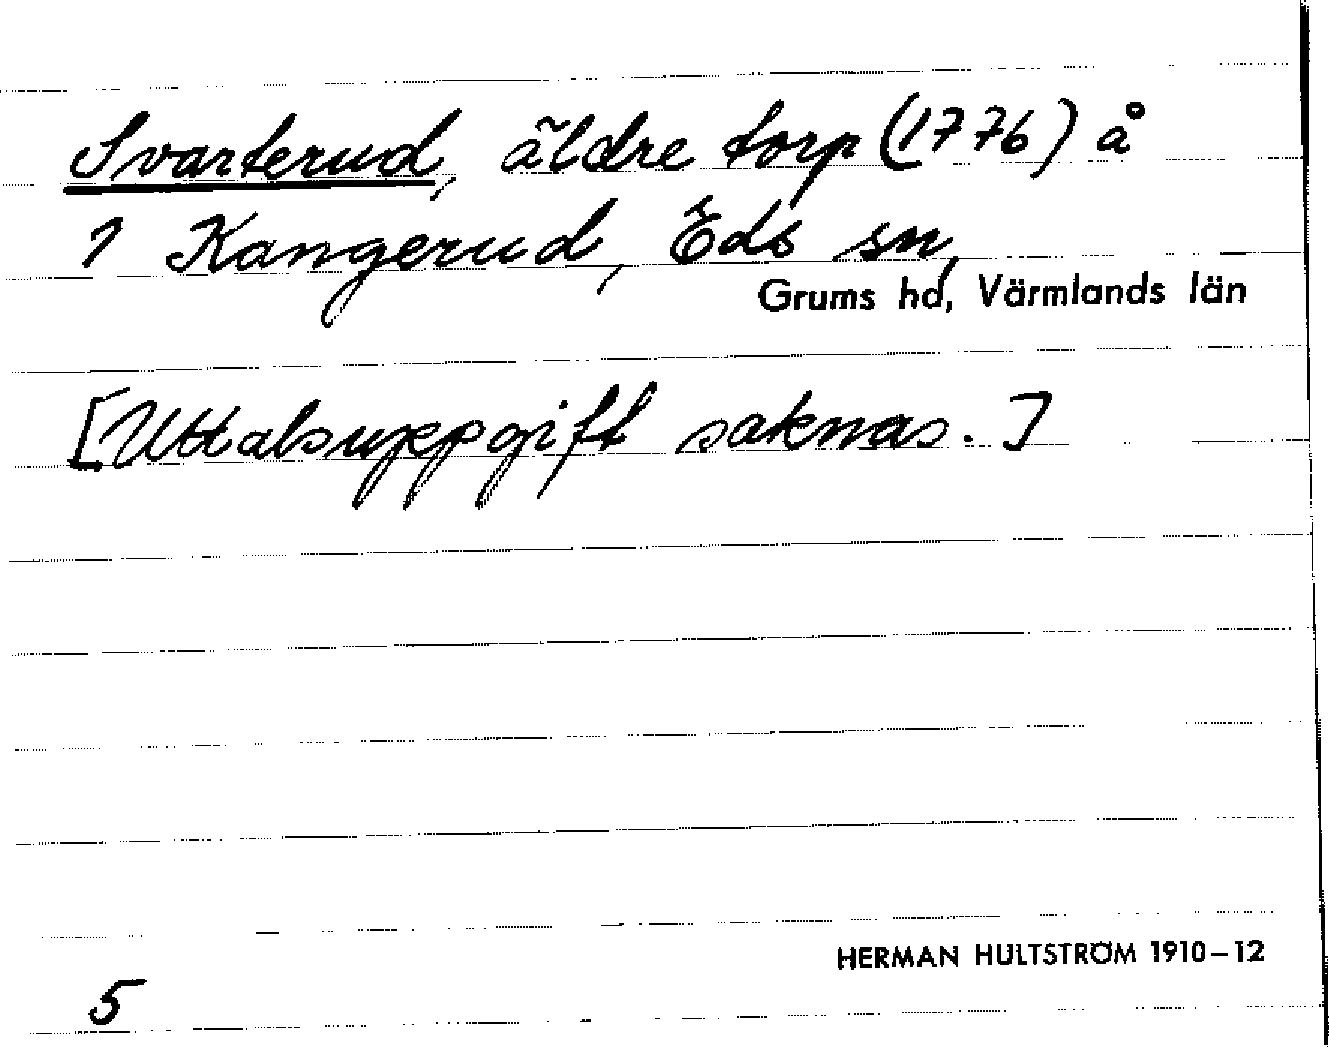 Svarterud, äldre torp (1776) å
1 Kangerud, Eds sn,
Grums hd, Värmlands län
[Uttalsuppgift saknas.]
HERMAN HULTSTRÖM 1910–12
5